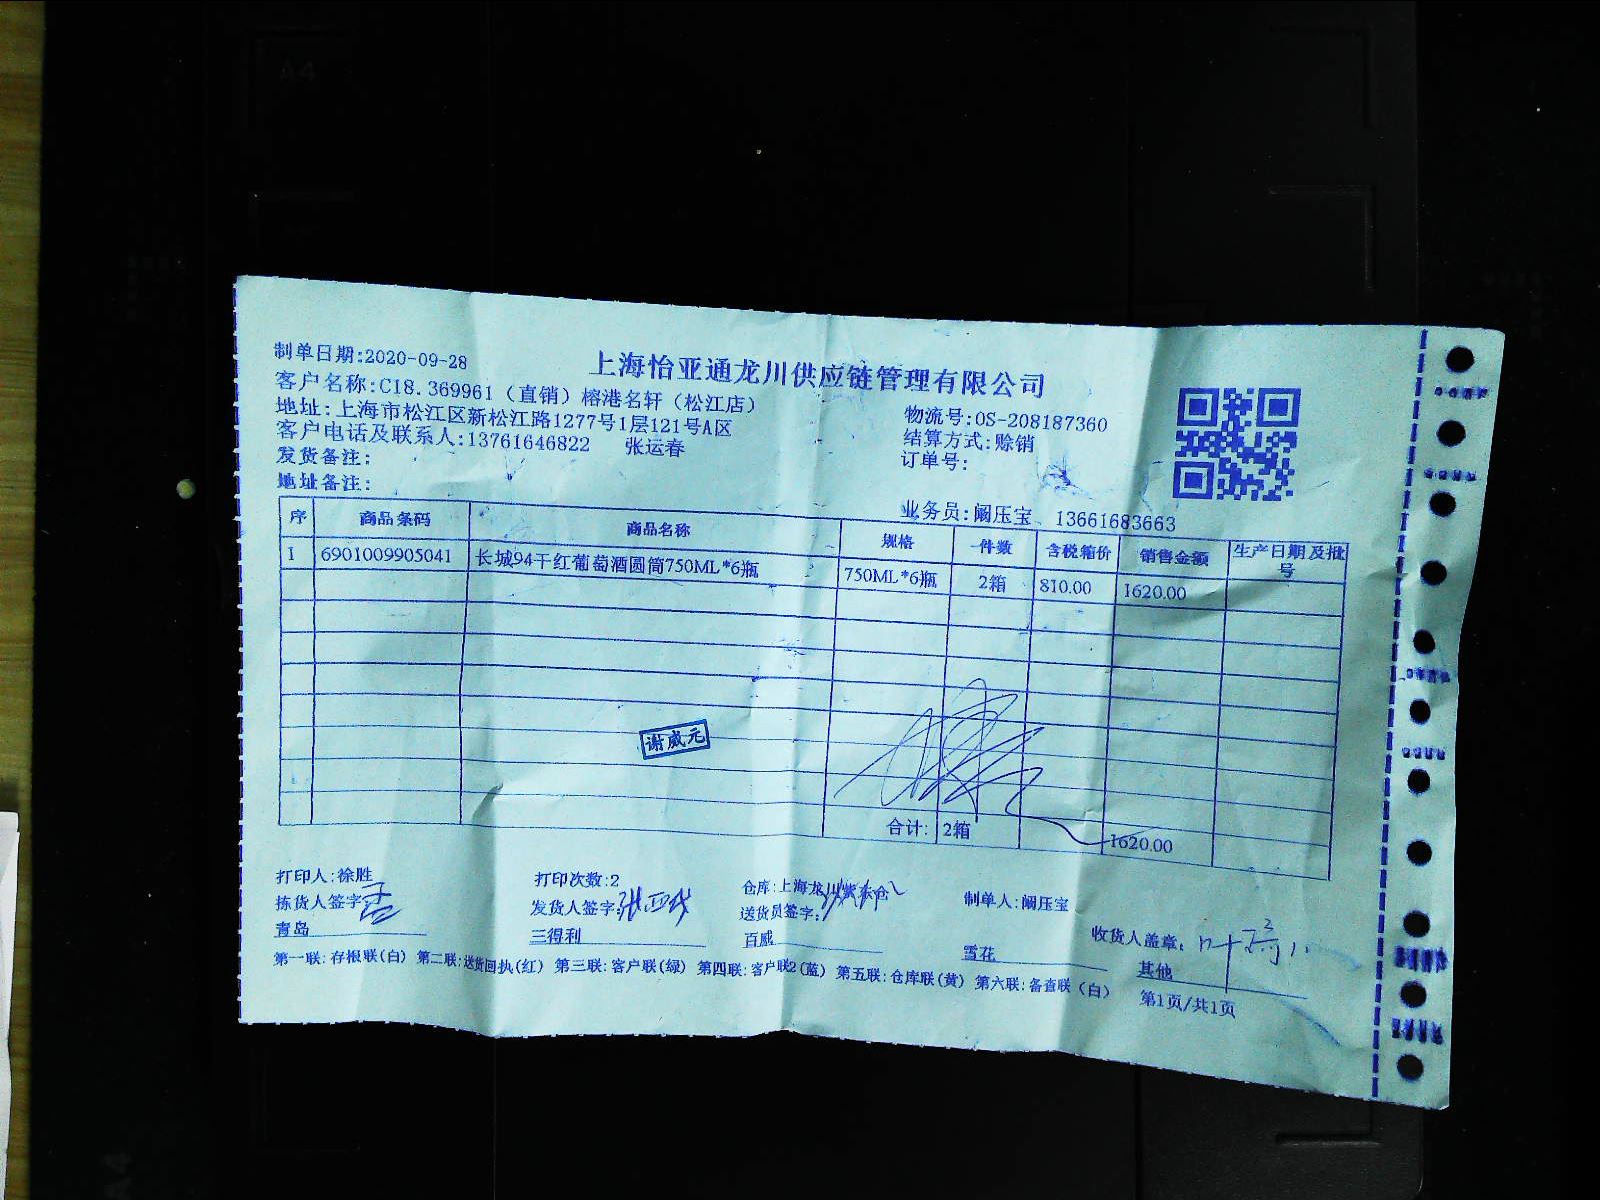 制单日期:2020-09-28
上海怡亚通龙川供应链管理有限公司
客户名称:C18.369961（直销）榕港名轩（松江店）
物流号:OS-208187360
地址:上海市松江区新松江路1277号1层121号A区
结算方式:赊销
客户电话及联系人:13761646822 张运春
订单号:
发货备注:
地址备注:
业务员:阚压宝 13661683663
序 商品条码 商品名称 规格 件数 含税箱价 销售金额 生产日期及批号
1 6901009905041 长城94干红葡萄酒圆筒750ML*6瓶 750ML*6瓶 2箱 810.00 1620.00
谢威元
合计: 2箱 1620.00
打印人:徐胜 打印次数:2 仓库:上海龙川 东仓 制单人:阚压宝
拣货人签字: 发货人签字: 送货员签字: 收货人盖章:
青岛 三得利 百威 雪花 其他
第一联:存根联(白) 第二联:送货回执(红) 第三联:客户联(绿) 第四联:客户联2(蓝) 第五联:仓库联(黄) 第六联:备查联(白) 第1页/共1页